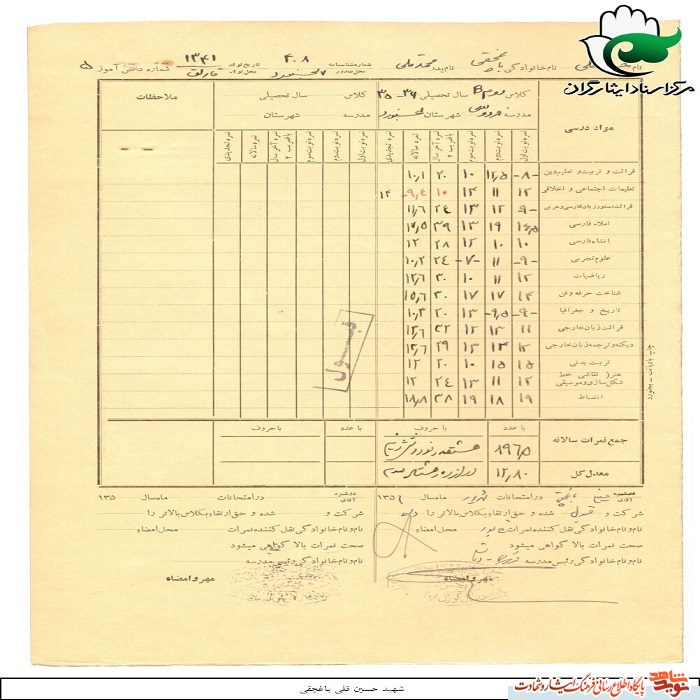 مرکز اسناد ایثارگران
نام نام خانوادگی باغچقی نام پدر محمدعلی شماره شناسنامه ۴۰۸ تاریخ تولد ۱۳۴۱ شماره دانش آموز ۵
محل صدور بجنورد محل تولد
کلاس دوم B سال تحصیلی ۳۶-۳۵
مدرسه فردوسی شهرستان بجنورد
کلاس سال تحصیلی
مدرسه شهرستان
ملاحظات
مواد درسی
نمره نوبت اول نمره نوبت دوم نمره نوبت سوم نمره آخر سال با ضریب ۲ نمره سالانه نمره تجدیدی
نمره نوبت اول نمره نوبت دوم نمره نوبت سوم نمره آخر سال با ضریب ۲ نمره سالانه نمره تجدیدی
قرائت و تربیت و تعلیم دین -۸- ۱۲,۵ ۱۰ ۲۰ ۱۰,۱
تعلیمات اجتماعی و اخلاقی ۱۲ ۱۱ ۱۴ ۱۰ ۹,۴- ۱۴
قرائت دستور زبان فارسی و عربی -۹- ۱۲ ۱۳ ۲۴ ۱۱,۶
املاء فارسی ۱۶,۵ ۱۹ ۱۳ ۳۹ ۱۷,۵
انشاء فارسی ۱۰ ۱۰ ۱۲ ۲۸ ۱۲
علوم تجربی -۹- ۱۱ -۷- ۲۴ ۱۰,۲
ریاضیات ۱۲ ۱۱ ۱۰ ۳۰ ۱۲,۶
شناخت حرفه و فن ۱۴ ۱۷ ۱۷ ۳۰ ۱۵,۶
تاریخ و جغرافیا -۹- -۹,۵- ۱۳ ۲۰ ۱۰,۳
قرائت زبان خارجی ۱۱ ۱۲ ۱۳ ۳۲ ۱۳,۶
دیکته و ترجمه زبان خارجی ۱۲ ۱۴ ۱۳ ۲۹ ۱۳,۶
تربیت بدنی ۱۵ ۱۵ ۱۰ ۲۰ ۱۲
هنر (نقاشی خط شکل سازی و موسیقی ۱۲ ۱۱ ۱۳ ۲۴ ۱۲
انضباط ۱۹ ۱۸ ۱۹ ۳۸ ۱۸,۸
قبول
با عدد با حروف با عدد با حروف
جمع نمرات سالانه ۱۹۶,۵
معدل کل ۱۲,۸۰ دوازده و هشتاد صدم
دوشیزه آقای باغچقی در امتحانات خرداد ماه سال ۱۳۵
شرکت و قبول شده و حق ارتقاء بکلاس بالاتر را دارد
نام و نام خانوادگی نقل کننده نمرات محل امضاء
صحت نمرات بالا گواهی میشود
نام و نام خانوادگی رئیس مدرسه
مهر و امضاء
دوشیزه آقای در امتحانات ماه سال ۱۳۵
شرکت و شده و حق ارتقاء بکلاس بالاتر را
نام و نام خانوادگی نقل کننده نمرات محل امضاء
صحت نمرات بالا گواهی میشود
نام و نام خانوادگی رئیس مدرسه
مهر و امضاء
شهید حسین قلی باغچقی
نوید شاهد
پایگاه اطلاع رسانی فرهنگ ایثار و شهادت